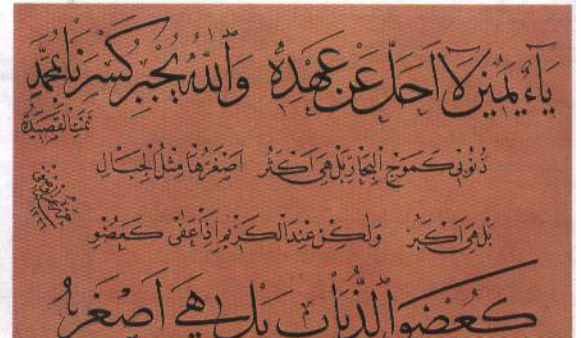 يَاءُ يَمِينٍ لَا اَحَلَّ عَنْ عَهْدِهِ وَاللّٰهُ يَجْبُرُ كَسْرَنَا بِمُحَمَّدٍ
تَمَّتِ الْقَصِيدَةُ
ذُنُوبِي كَمَوْجِ الْبِحَارِ بَلْ هِيَ اَكْثَرُ اَصْغَرُهَا مِثْلُ الْجِبَالِ
بَلْ هِيَ اَكْبَرُ وَلٰكِنْ عِنْدَ الْكَرِيمِ اِذَا عَفٰى كَعُضْوٍ
كَعُضْوِ الذُّبَابِ بَلْ هِيَ اَصْغَرُ